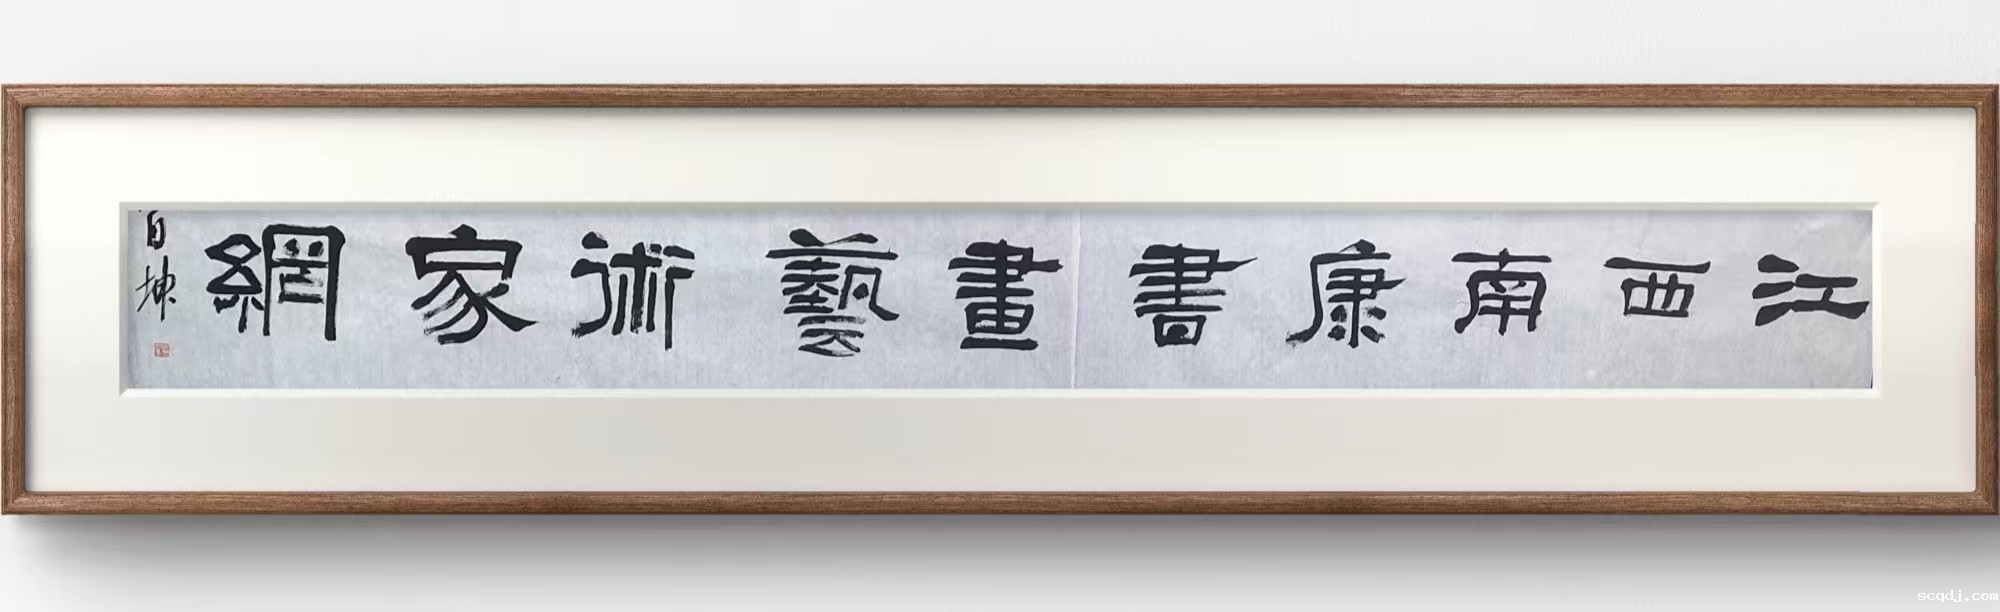 江西南康書畫藝術家網
自坤
scqdj.com